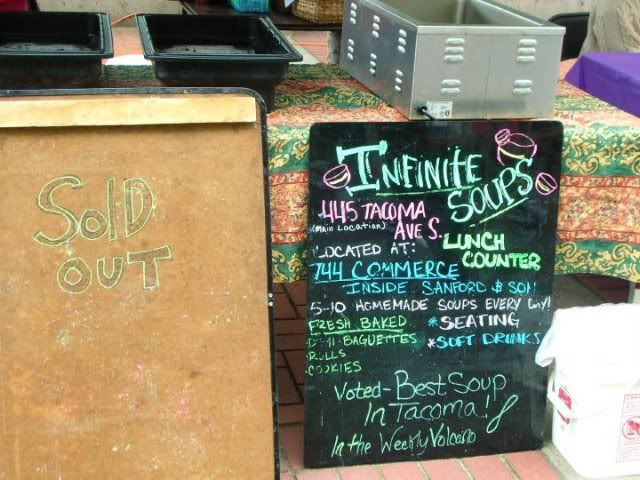 SOlD
OUT
INFINITE
SOUPS
445 TACOMA
(Main Location) AVE S.
LUNCH
COUNTER
LOCATED AT:
744 COMMERCE
INSIDE SANFORD & SON!
5-10 HOMEMADE SOUPS EVERY DAY!
FRESH BAKED
*SEATING
DEMI BAGUETTES
*SOFT DRINKS
ROLLS
COOKIES
Voted-Best Soup
In Tacoma!
In the Weekly Volcano